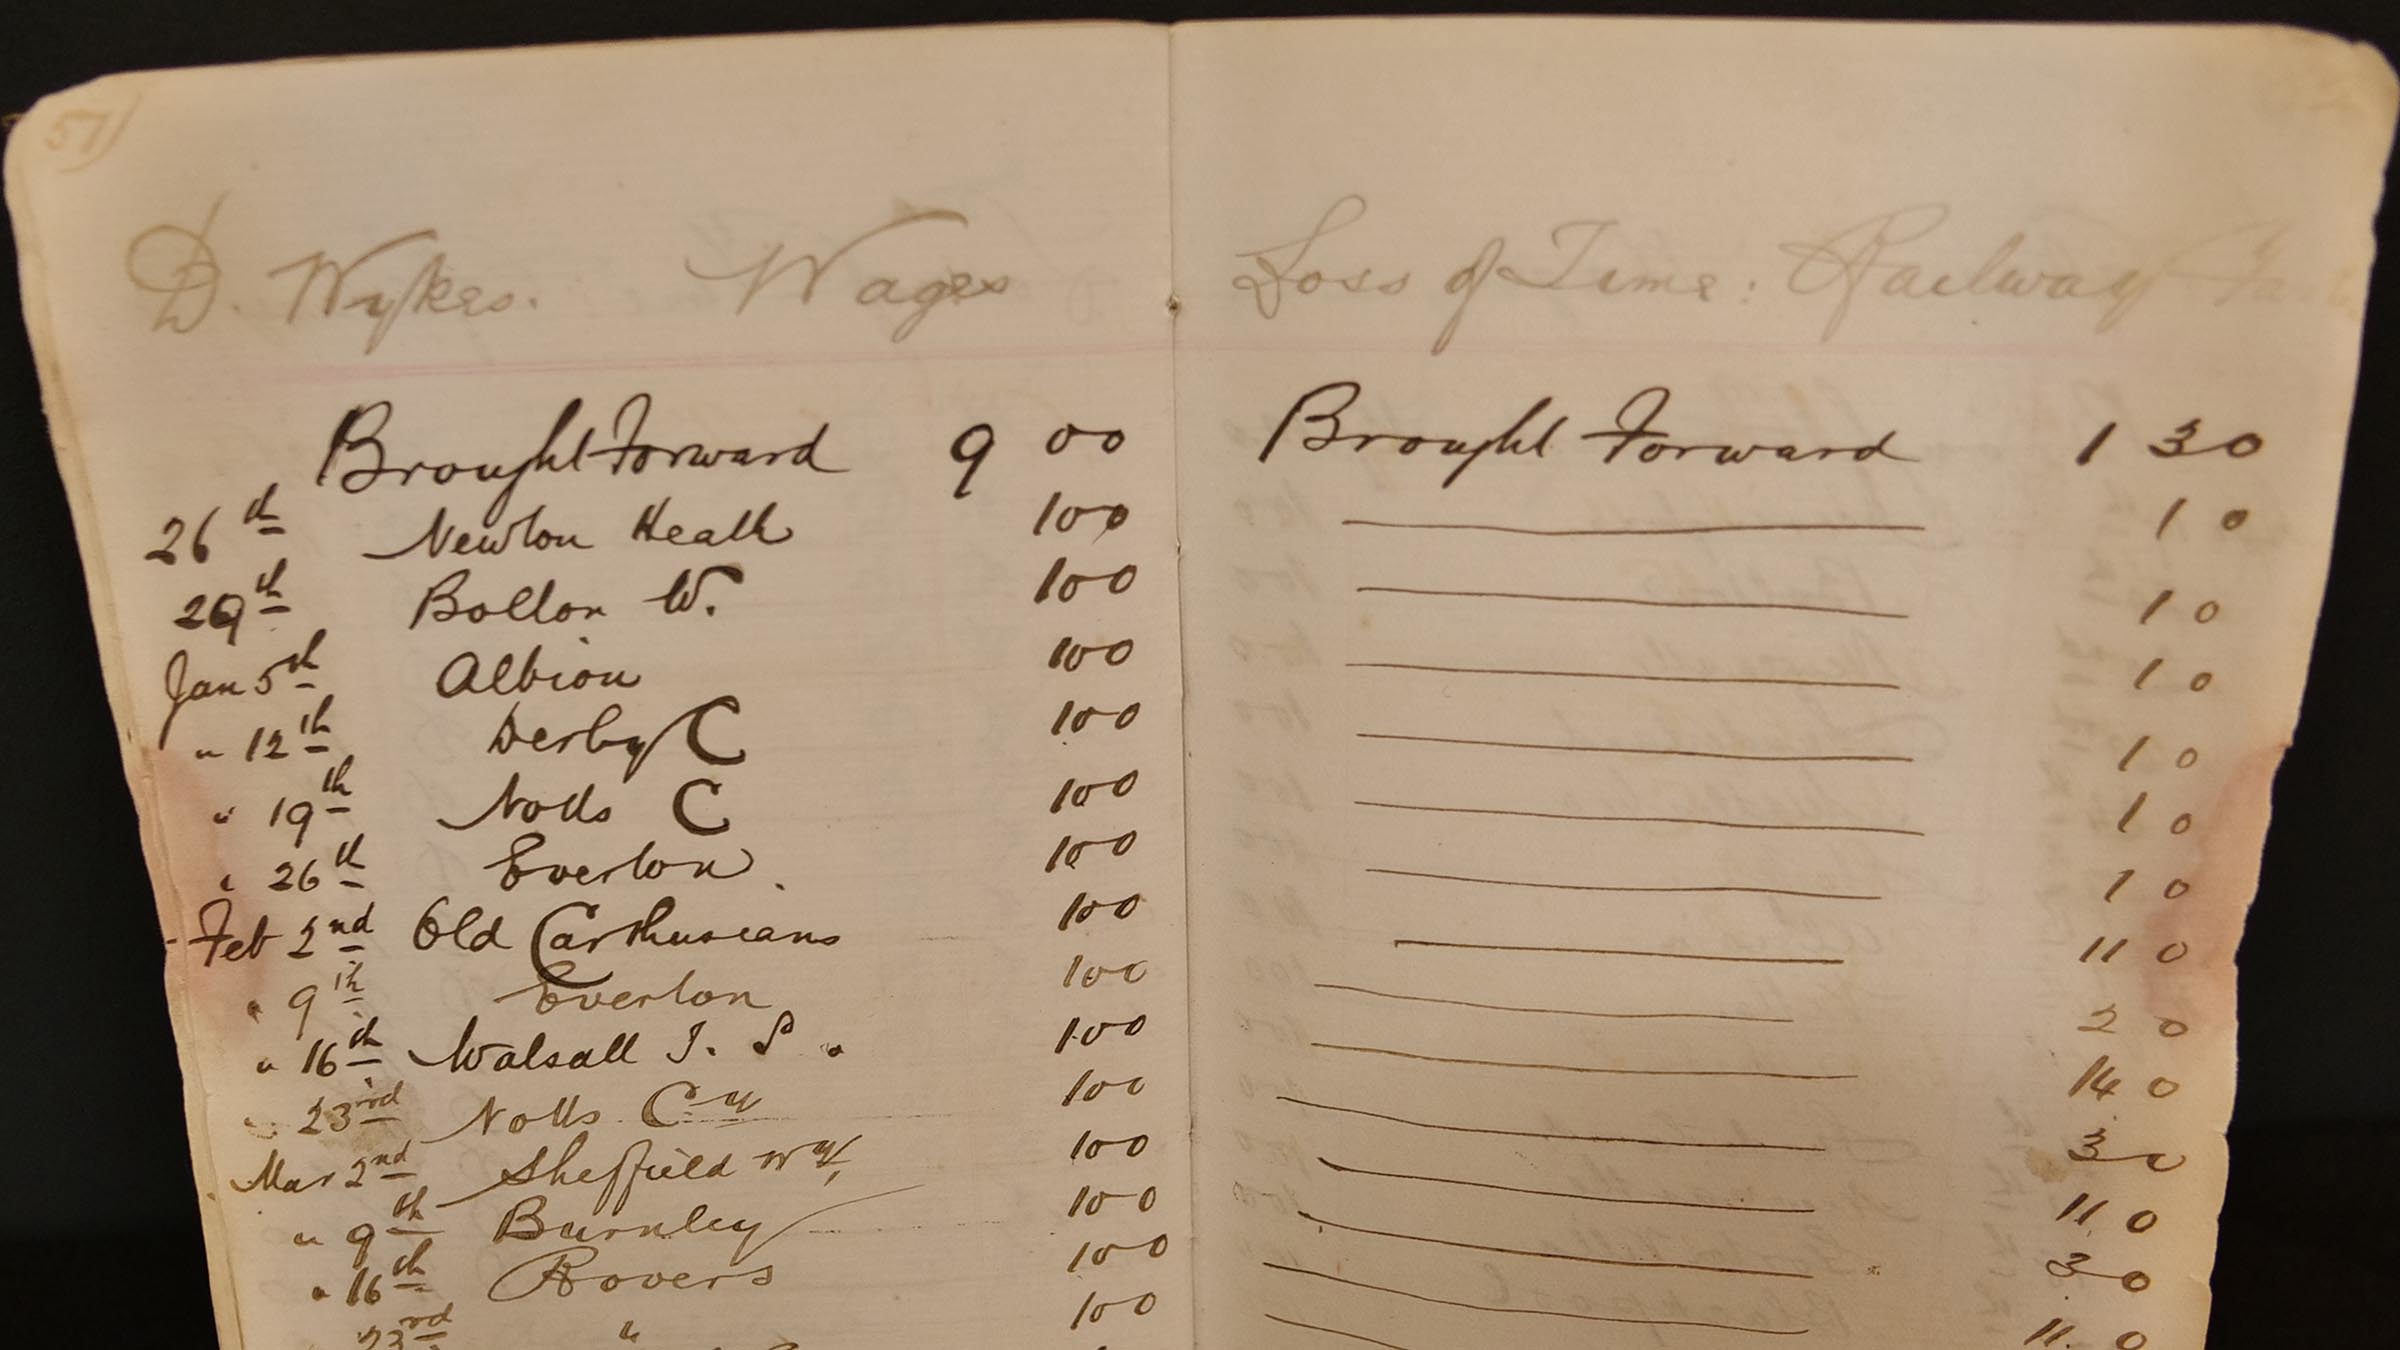 57)
D. Wykes. Wages
Brought Forward 9 00
26th Newton Heath 100
29th Bolton W. 100
Jan 5th Albion 100
" 12th Derby C 100
" 19th Notts C 100
" 26th Everton. 100
Feb 2nd Old Carthusians 100
" 9th Everton 100
" 16th Walsall T. S. 100
" 23rd Notts Cy 100
Mar 2nd Sheffield 100
" 9th Burnley 100
" 16th Rovers 100
23rd " 100
Loss of Time: Railway
Brought Forward 1 30
1 0
1 0
1 0
1 0
1 0
1 0
11 0
2 0
14 0
3 0
11 0
3 0
11. 0